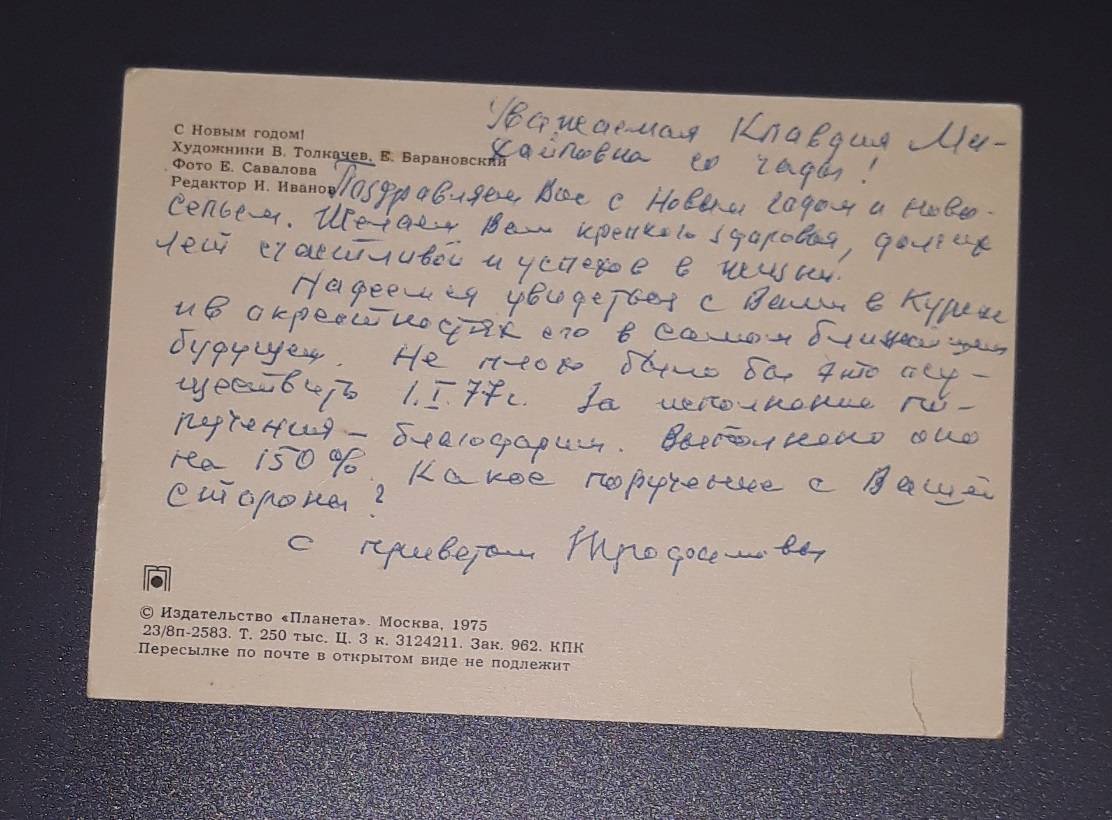 С Новым годом!
Художники В. Толкачев, Е. Барановский
Фото Е. Савалова
Редактор И. Иванов
Уважаемая Клавдия Ми-
хайловна со чады!
Поздравляем Вас с Новым годом и ново-
сельем. Желаем Вам крепкого здоровья, долгих
лет счастливой и успехов в жизни.
Надеемся увидеться с Вами в Курске
и в окрестностях его в самом ближайшем
будущем. Не плохо было бы это осу-
ществить 1.I.77г. За исполнение по-
ручения – благодарим. Выполнено оно
на 150%. Какое поручение с Вашей
стороны?
С приветом Трофимовы
© Издательство «Планета». Москва, 1975
23/8п-2583. Т. 250 тыс. Ц. 3 к. 3124211. Зак. 962. КПК
Пересылке по почте в открытом виде не подлежит